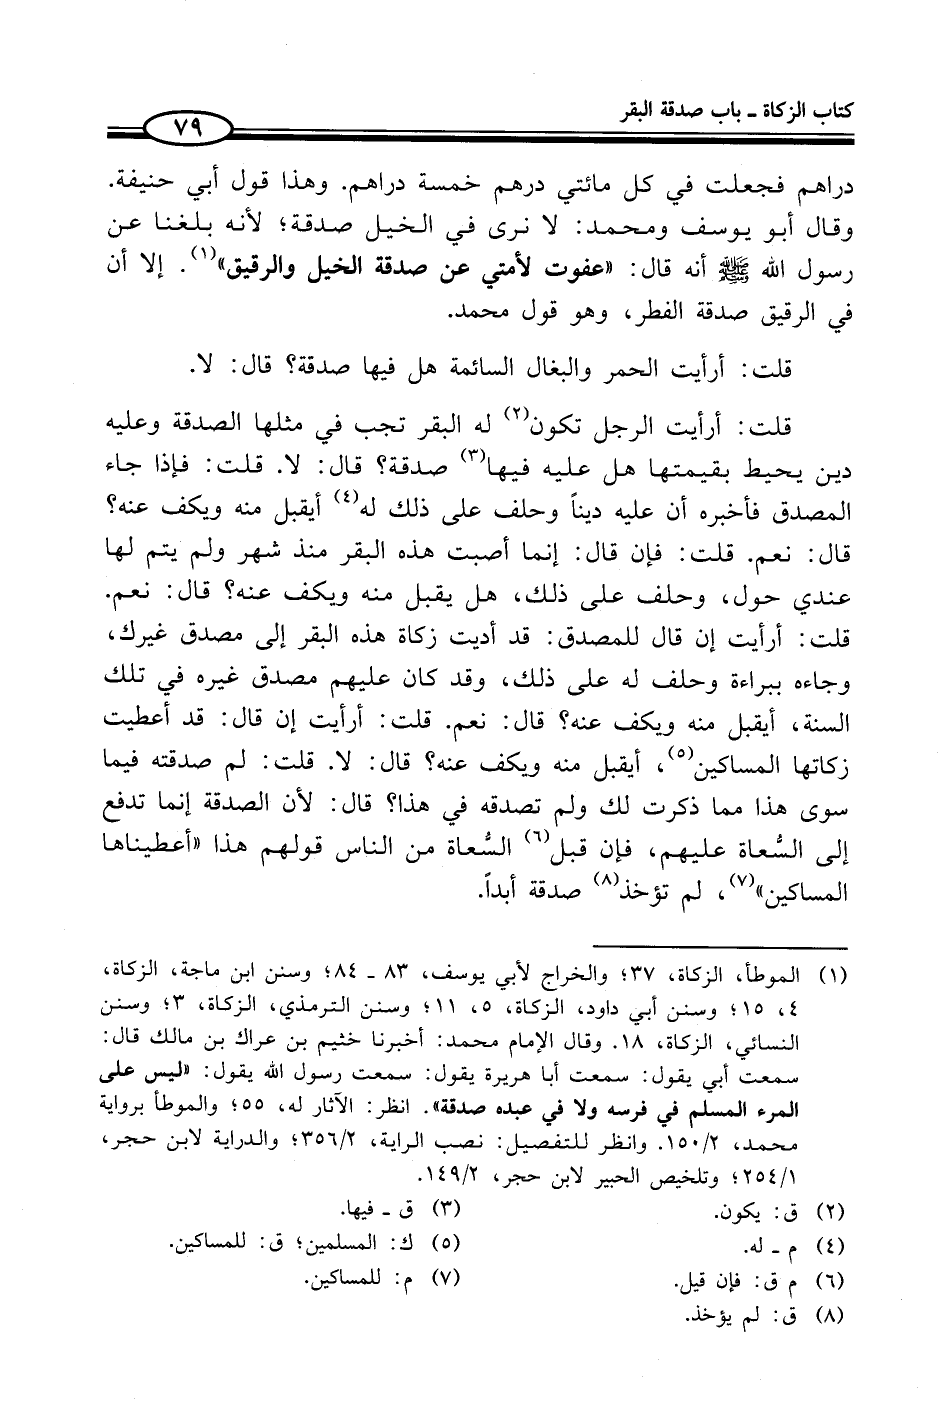 كتاب الزكاة ـ باب صدقة البقر
٧٩
دراهم فجعلت في كل مائتي درهم خمسة دراهم. وهذا قول أبي حنيفة.
وقال أبو يوسف ومحمد: لا نرى في الخيل صدقة؛ لأنه بلغنا عن
رسول الله ﷺ أنه قال: «عفوت لأمتي عن صدقة الخيل والرقيق»(١). إلا أن
في الرقيق صدقة الفطر، وهو قول محمد.
قلت: أرأيت الحمر والبغال السائمة هل فيها صدقة؟ قال: لا.
قلت: أرأيت الرجل تكون(٢) له البقر تجب في مثلها الصدقة وعليه
دين يحيط بقيمتها هل عليه فيها(٣) صدقة؟ قال: لا. قلت: فإذا جاء
المصدق فأخبره أن عليه ديناً وحلف على ذلك له(٤) أيقبل منه ويكف عنه؟
قال: نعم. قلت: فإن قال: إنما أصبت هذه البقر منذ شهر ولم يتم لها
عندي حول، وحلف على ذلك، هل يقبل منه ويكف عنه؟ قال: نعم.
قلت: أرأيت إن قال للمصدق: قد أديت زكاة هذه البقر إلى مصدق غيرك،
وجاءه ببراءة وحلف له على ذلك، وقد كان عليهم مصدق غيره في تلك
السنة، أيقبل منه ويكف عنه؟ قال: نعم. قلت: أرأيت إن قال: قد أعطيت
زكاتها المساكين(٥)، أيقبل منه ويكف عنه؟ قال: لا. قلت: لم صدقته فيما
سوى هذا مما ذكرت لك ولم تصدقه في هذا؟ قال: لأن الصدقة إنما تدفع
إلى السُّعاة عليهم، فإن قبل(٦) السُّعاة من الناس قولهم هذا «أعطيناها
المساكين»(٧)، لم تؤخذ(٨) صدقة أبداً.
(١) الموطأ، الزكاة، ٣٧؛ والخراج لأبي يوسف، ٨٣ ـ ٨٤؛ وسنن ابن ماجة، الزكاة،
٤، ١٥؛ وسنن أبي داود، الزكاة، ٥، ١١؛ وسنن الترمذي، الزكاة، ٣؛ وسنن
النسائي، الزكاة، ١٨. وقال الإمام محمد: أخبرنا خثيم بن عراك بن مالك قال:
سمعت أبي يقول: سمعت أبا هريرة يقول: سمعت رسول الله يقول: «ليس على
المرء المسلم في فرسه ولا في عبده صدقة». انظر: الآثار له، ٥٥؛ والموطأ برواية
محمد، ١٥٠/٢. وانظر للتفصيل: نصب الراية، ٣٥٦/٢؛ والدراية لابن حجر،
٢٥٤/١؛ وتلخيص الحبير لابن حجر، ١٤٩/٢.
(٢) ق: يكون. (٣) ق ـ فيها.
(٤) م ـ له. (٥) ك: المسلمين؛ ق: للمساكين.
(٦) م ق: فإن قيل. (٧) م: للمساكين.
(٨) ق: لم يؤخذ.